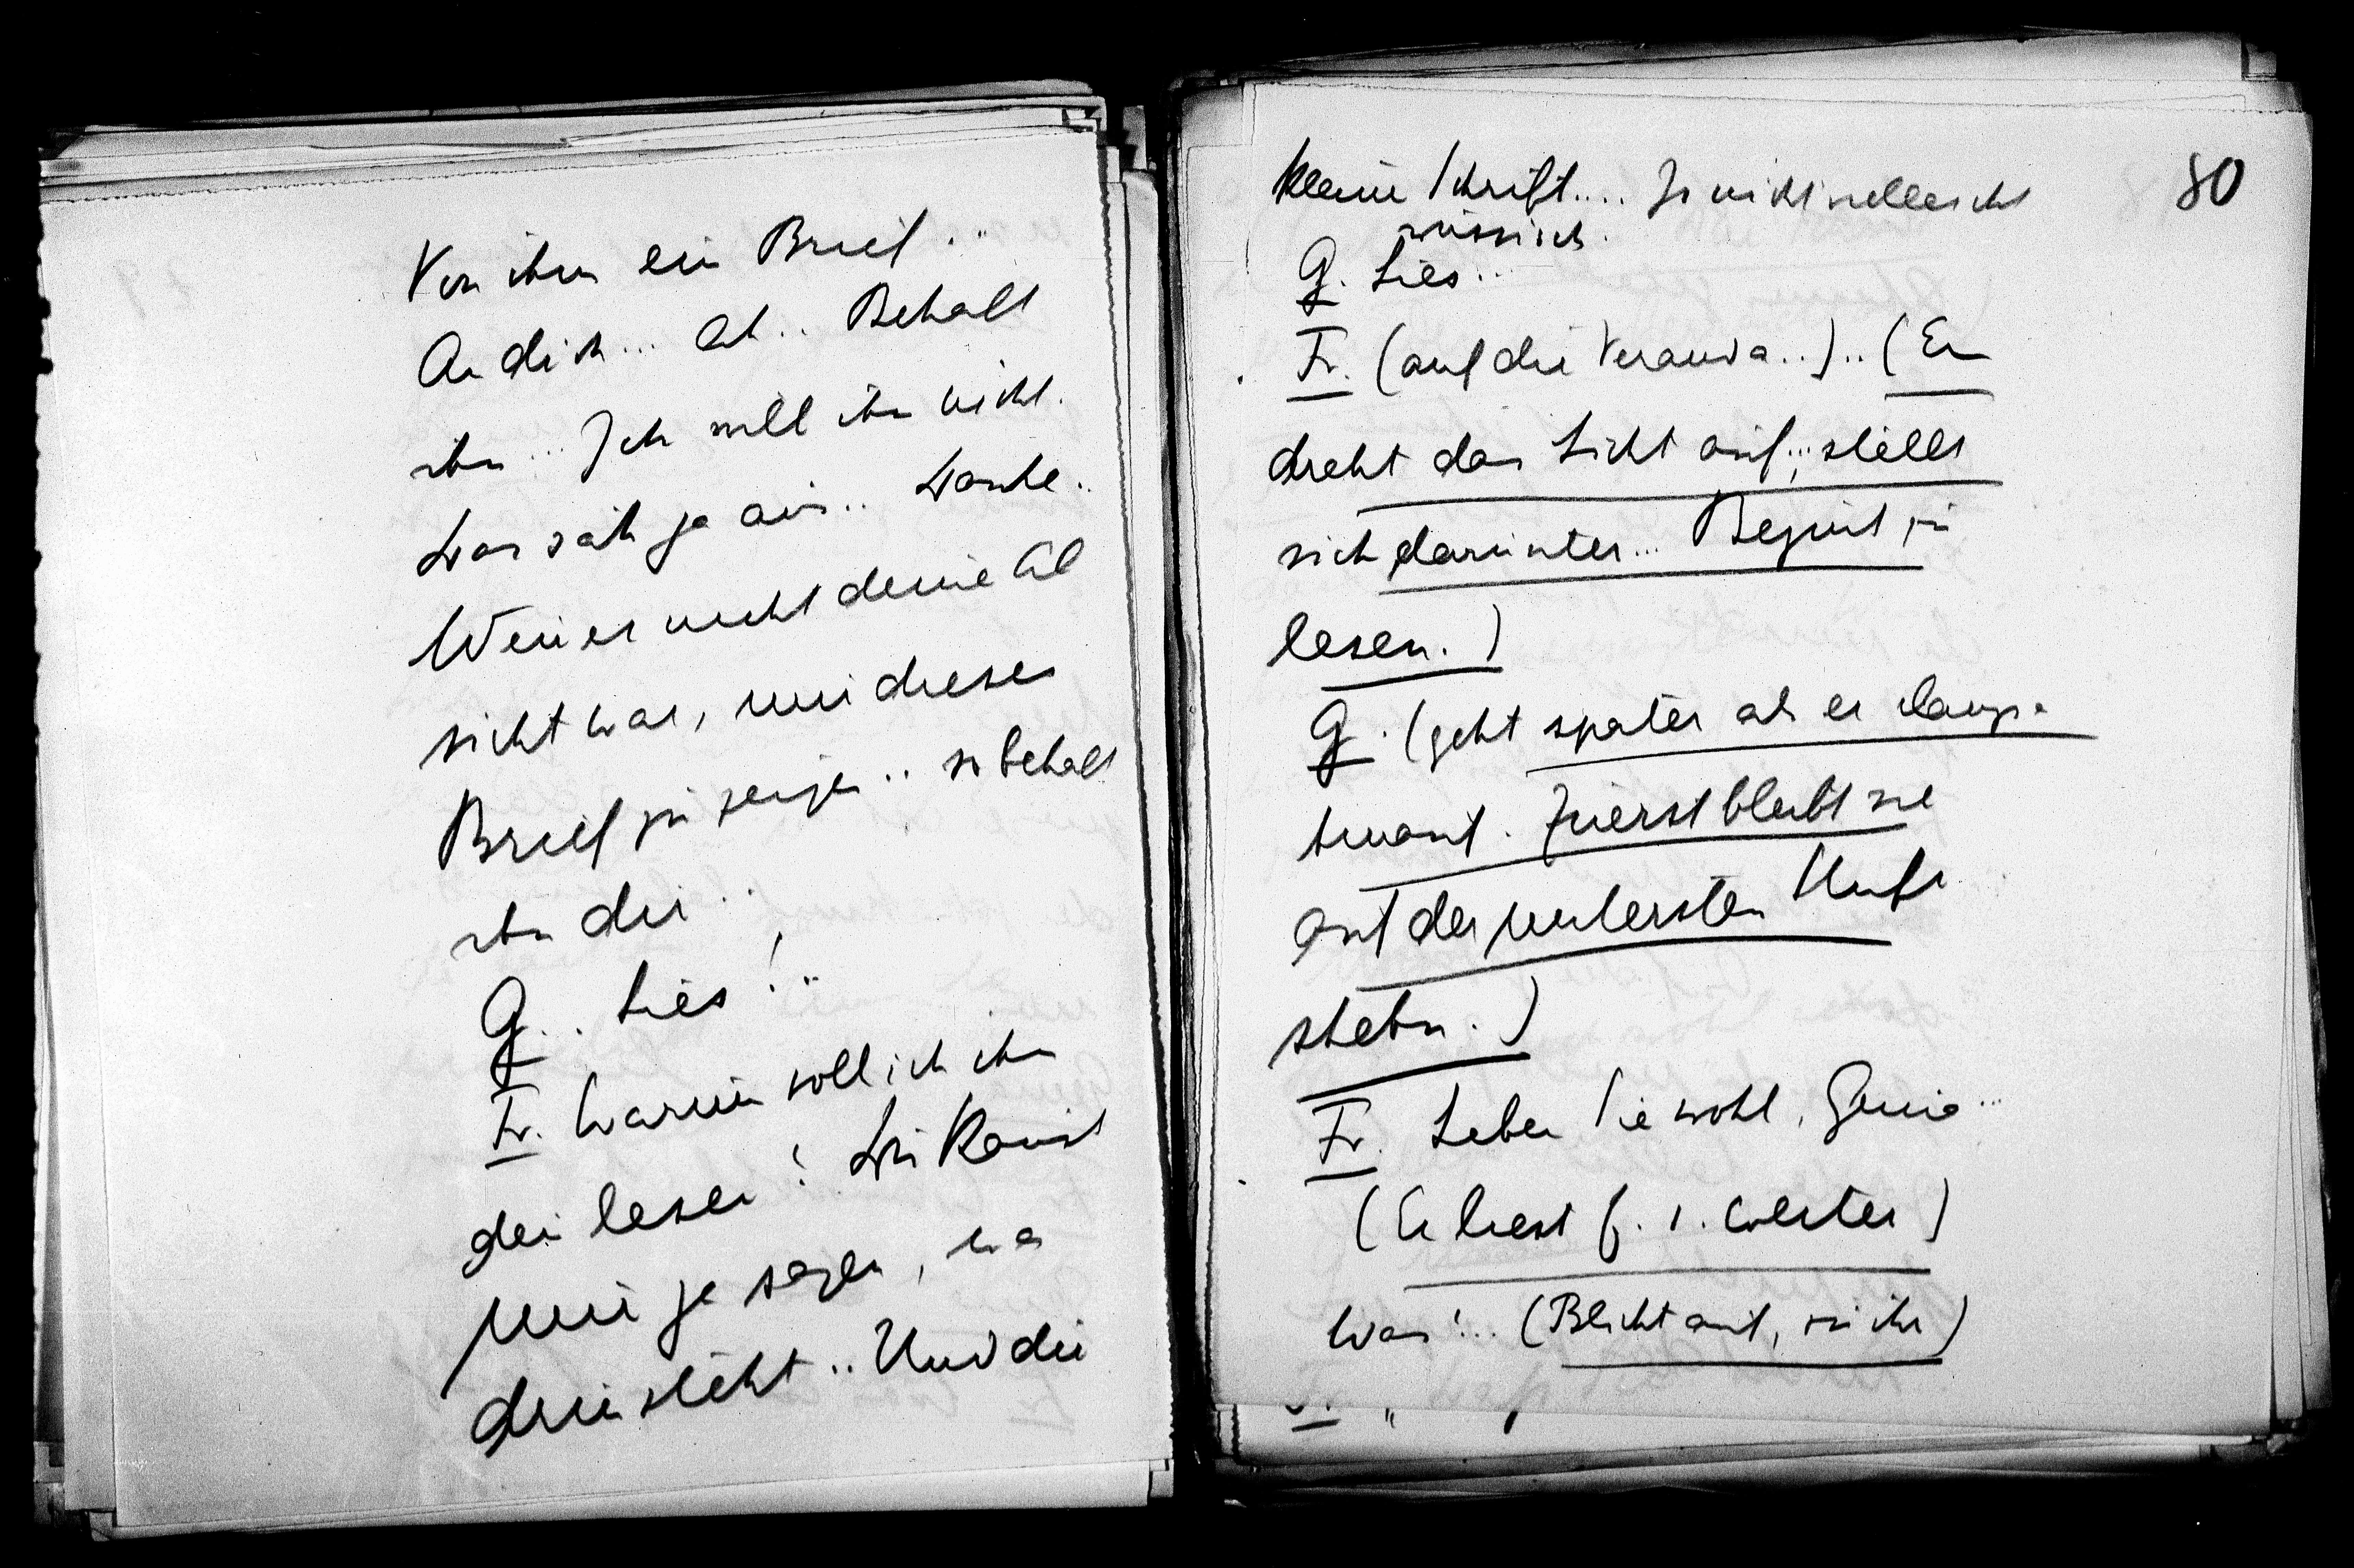 Von ihm ein Brief...
An dich... Ah.. Behalt
ihn... Ich will ihn nicht.
Das säh ja aus.. Danke..
Wenn es nicht deine Ab
sicht war, mir diesen
Brief zu zeigen.. so behalt
ihn dir..
G.. Lies!..
Fr. Warum soll ich ihn
den lesen? Du kannst
mir ja sagen, was
drin steht.. Und die
80
kleine Schrift.... Is nicht vielleicht
russisch.
G. Lies...
Fr. (auf die Veranda..).. (Er
dreht das Licht auf..., stellt
sich darunter... Beginnt zu
lesen.)
G. (geht später als er langs.
hinauf. Zuerst bleibt sie
auf der untersten Stufe
stehn.)
Fr. Leben Sie wohl, Genia...
(Er liest f. s. weiter)
Was!... (Blickt auf, zu ihr)